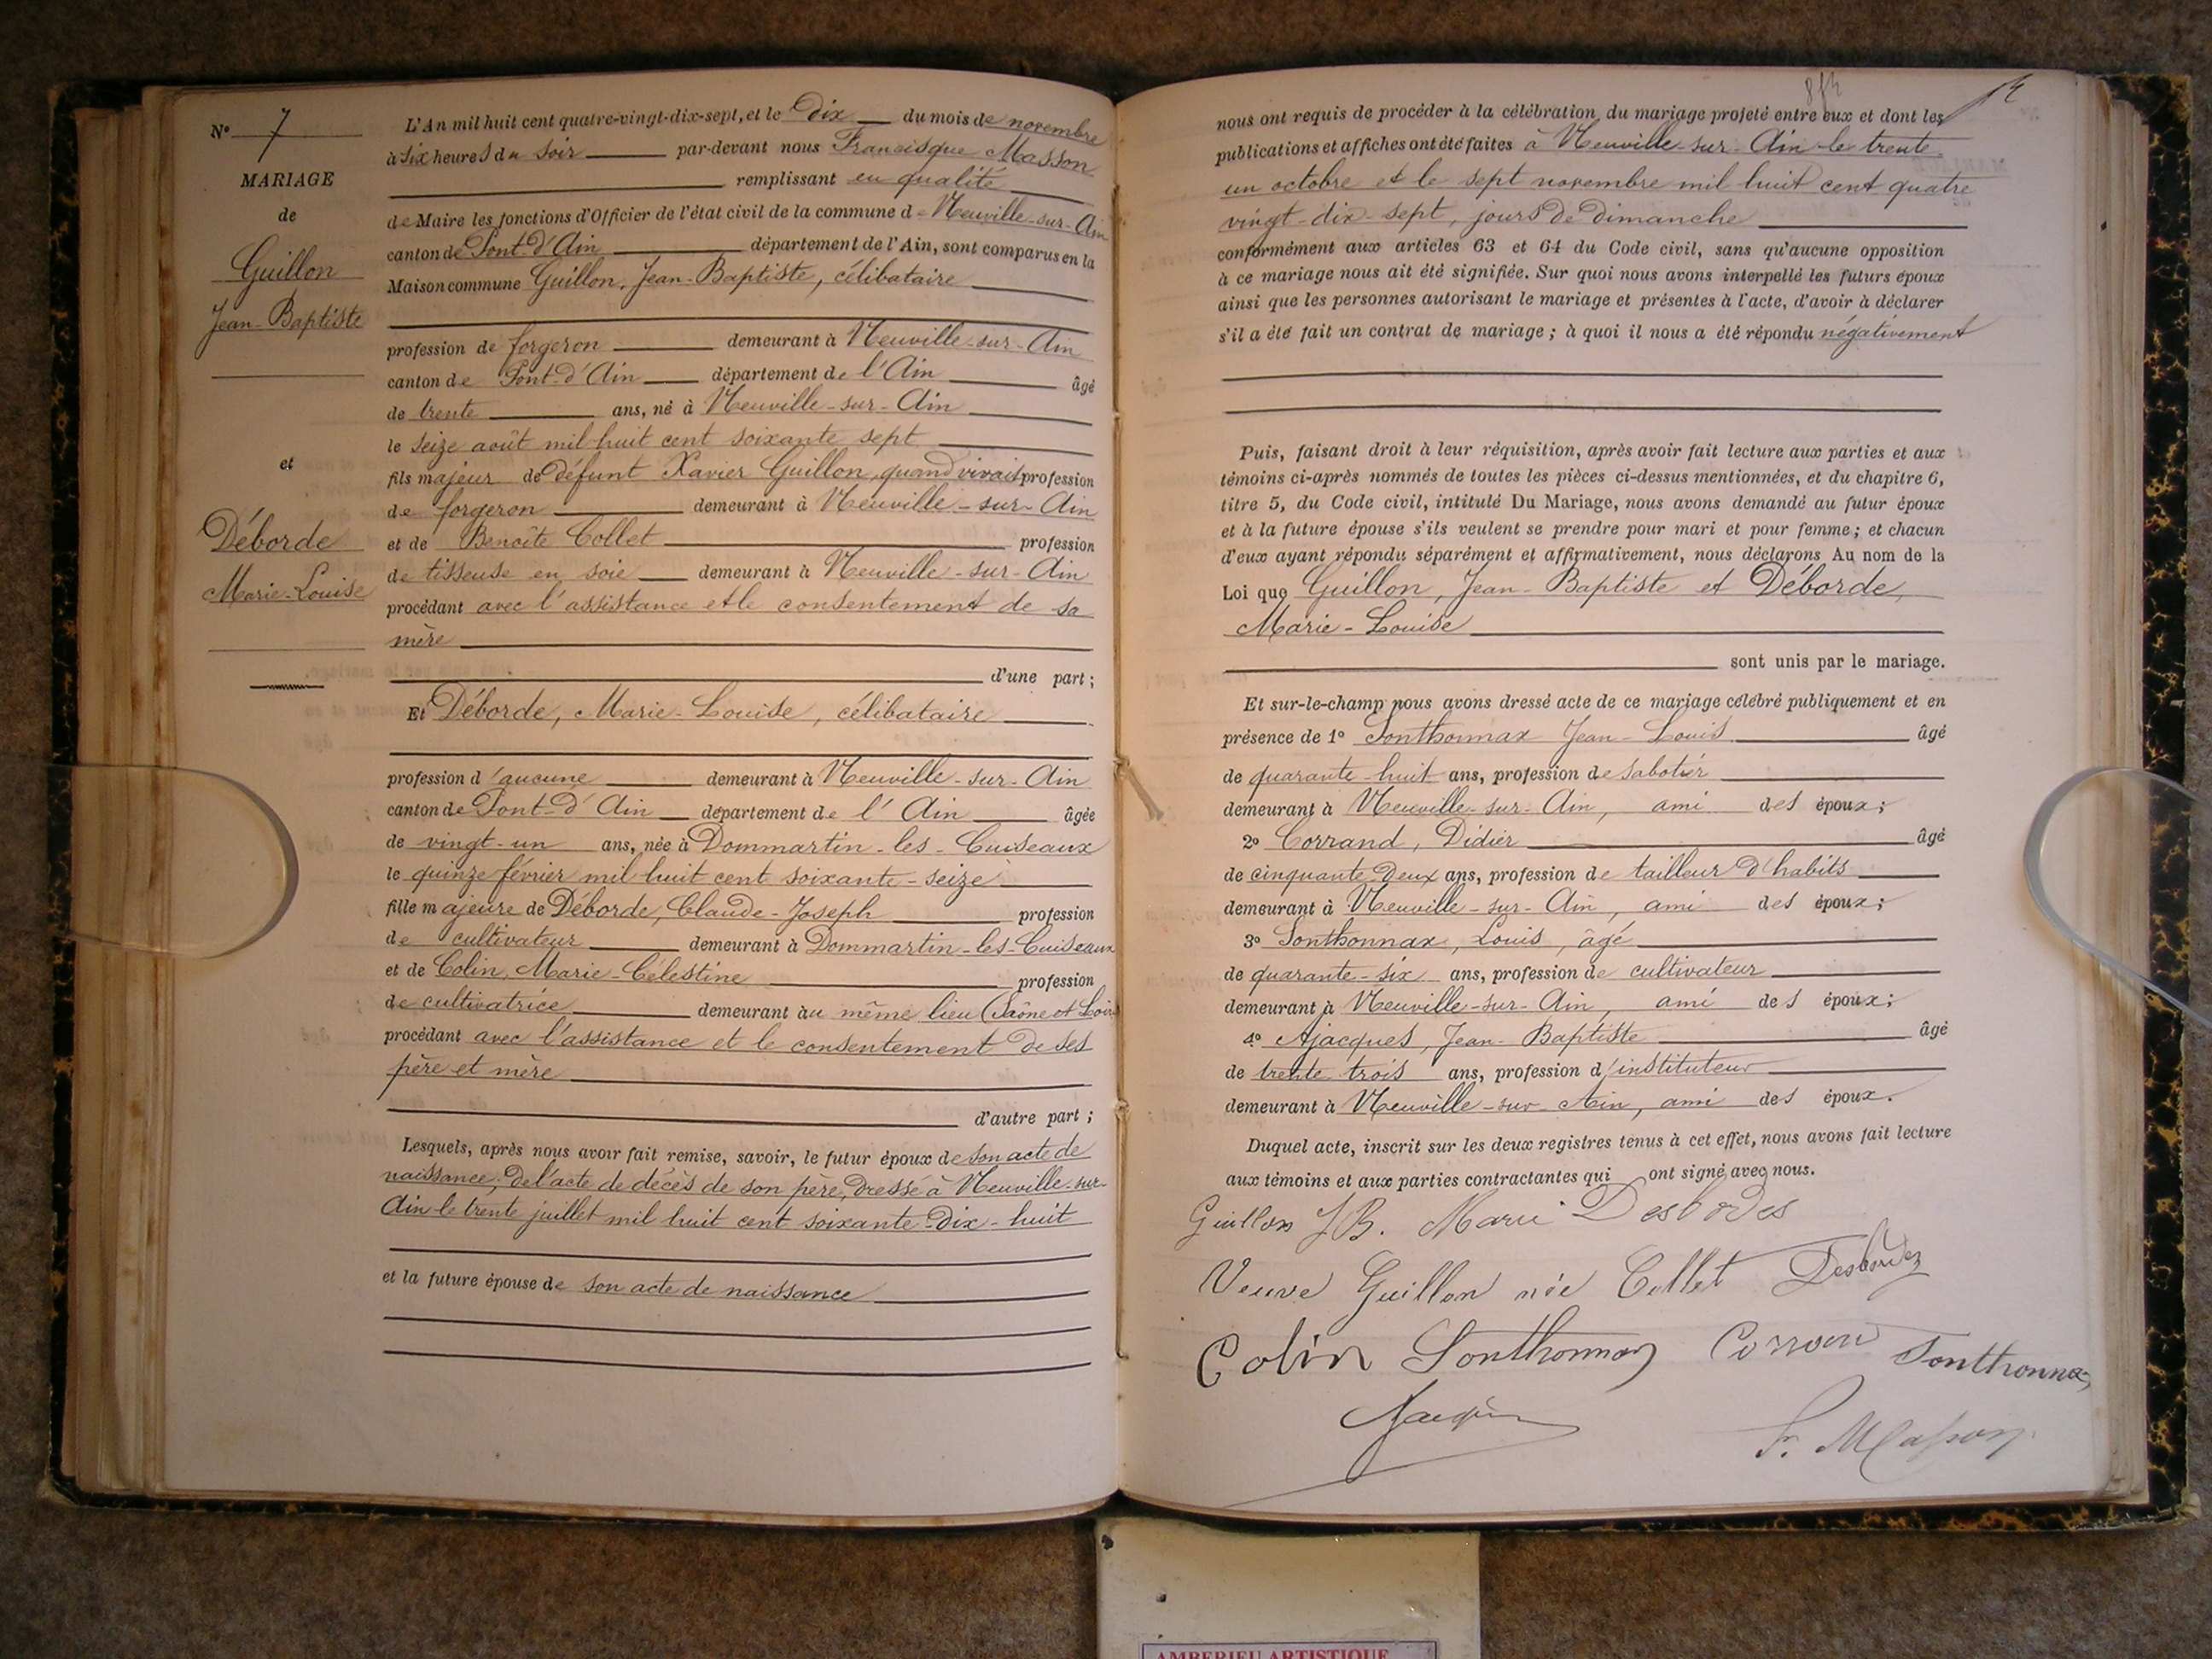 N° 7
MARIAGE
de
Guillon
Jean-Baptiste
et
Déborde
Marie-Louise
L'An mil huit cent quatre-vingt-dix-sept, et le Dix du mois de novembre
à six heures du soir par-devant nous Francisque Masson
remplissant en qualité
de Maire les fonctions d'Officier de l'état civil de la commune de Neuville-sur-Ain
canton de Pont-d'Ain département de l'Ain, sont comparus en la
Maison commune Guillon, Jean-Baptiste, célibataire
profession de forgeron demeurant à Neuville-sur-Ain
canton de Pont-d'Ain département de l'Ain âgé
de trente ans, né à Neuville-sur-Ain
le seize août mil huit cent soixante sept
fils majeur de défunt Xavier Guillon, quand vivait profession
de forgeron demeurant à Neuville-sur-Ain
et de Benoîte Collet profession
de tisseuse en soie demeurant à Neuville-sur-Ain
procédant avec l'assistance et le consentement de sa
mère
d'une part;
Et Déborde, Marie-Louise, célibataire
profession d'aucune demeurant à Neuville-sur-Ain
canton de Pont-d'Ain département de l'Ain âgée
de vingt-un ans, née à Dommartin-les-Cuiseaux
le quinze février mil huit cent soixante-seize
fille majeure de Déborde, Claude-Joseph profession
de cultivateur demeurant à Dommartin-les-Cuiseaux
et de Colin, Marie-Célestine profession
de cultivatrice demeurant au même lieu (Saône et Loire
procédant avec l'assistance et le consentement de ses
père et mère
d'autre part;
Lesquels, après nous avoir fait remise, savoir, le futur époux de son acte de
naissance, de l'acte de décès de son père, dressé à Neuville-sur-
Ain le trente juillet mil huit cent soixante-dix-huit
et la future épouse de son acte de naissance
12
nous ont requis de procéder à la célébration du mariage projeté entre eux et dont les
publications et affiches ont été faites à Neuville-sur-Ain le trente
un octobre et le sept novembre mil huit cent quatre
vingt-dix-sept, jours de dimanche
conformément aux articles 63 et 64 du Code civil, sans qu'aucune opposition
à ce mariage nous ait été signifiée. Sur quoi nous avons interpellé les futurs époux
ainsi que les personnes autorisant le mariage et présentes à l'acte, d'avoir à déclarer
s'il a été fait un contrat de mariage; à quoi il nous a été répondu négativement
Puis, faisant droit à leur réquisition, après avoir fait lecture aux parties et aux
témoins ci-après nommés de toutes les pièces ci-dessus mentionnées, et du chapitre 6,
titre 5, du Code civil, intitulé Du Mariage, nous avons demandé au futur époux
et à la future épouse s'ils veulent se prendre pour mari et pour femme; et chacun
d'eux ayant répondu séparément et affirmativement, nous déclarons Au nom de la
Loi que Guillon, Jean-Baptiste et Déborde,
Marie-Louise
sont unis par le mariage.
Et sur-le-champ nous avons dressé acte de ce mariage célébré publiquement et en
présence de 1° Sonthonnax Jean-Louis âgé
de quarante-huit ans, profession de sabotier
demeurant à Neuville-sur-Ain, ami des époux;
2° Corrand, Didier âgé
de cinquante deux ans, profession de tailleur d'habits
demeurant à Neuville-sur-Ain, ami des époux;
3° Sonthonnax, Louis, âgé
de quarante-six ans, profession de cultivateur
demeurant à Neuville-sur-Ain, ami des époux;
4° Ajacques, Jean-Baptiste âgé
de trente trois ans, profession d'instituteur
demeurant à Neuville-sur-Ain, ami des époux.
Duquel acte, inscrit sur les deux registres tenus à cet effet, nous avons fait lecture
aux témoins et aux parties contractantes qui ont signé avec nous.
Guillon JB. Marie Desbordes
Veuve Guillon née Collet Desbordes
Colin Sonthonnax Corrand Sonthonnax
Ajacques
F. Masson
AMBERIEU ARTISTIQUE